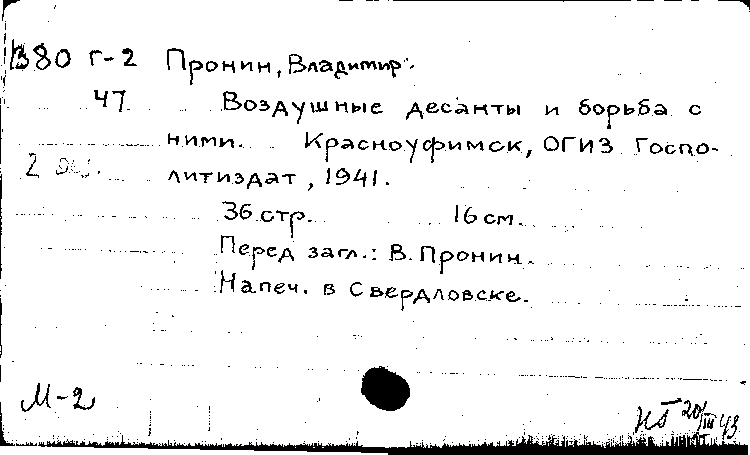 В80 Г-2 Пронин, Владимир.
47 Воздушные десанты и борьба с
ними. Красноуфимск, ОГИЗ Госпо-
2 экз. литиздат, 1941.
36 стр. 16 см.
Перед загл.: В. Пронин.
Напеч. в Свердловске.
М-2
20/III 43